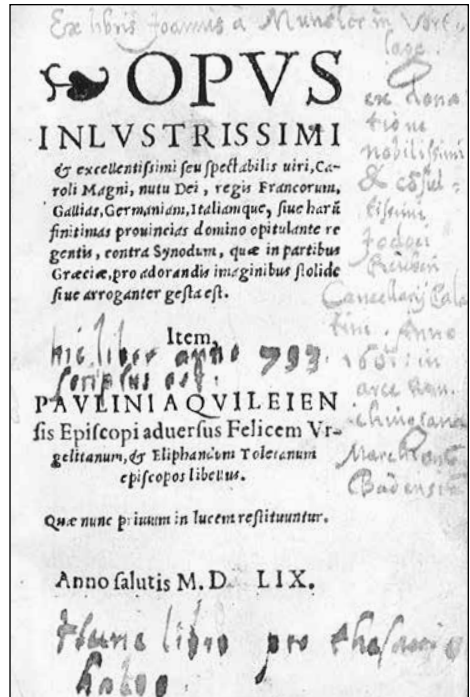 Ex libris Joannis à Munster in Vort-
lage.
OPVS
INLVSTRISSIMI
& excellentissimi seu spectabilis uiri, Ca-
roli Magni, nutu Dei, regis Francorum,
Gallias, Germaniam, Italiamque, siue harū
finitimas prouincias domino opitulante re
gentis, contra Synodum, quæ in partibus
Græciæ, pro adorandis imaginibus stolide
siue arroganter gesta est.
Item,
hic liber anno 793
scriptus est.
PAVLINI AQVILEIEN
sis Episcopi aduersus Felicem Vr-
gelitanum, & Eliphandum Toletanum
episcopos libellus.
Quæ nunc primum in lucem restituuntur.
Anno salutis M. D. LIX.
ex dona
tione
nobilissimi
&
tissimi
Cancellarij Pala
tini. Anno
in
arce
Marchionis
Badensis
libro pro
habeo.